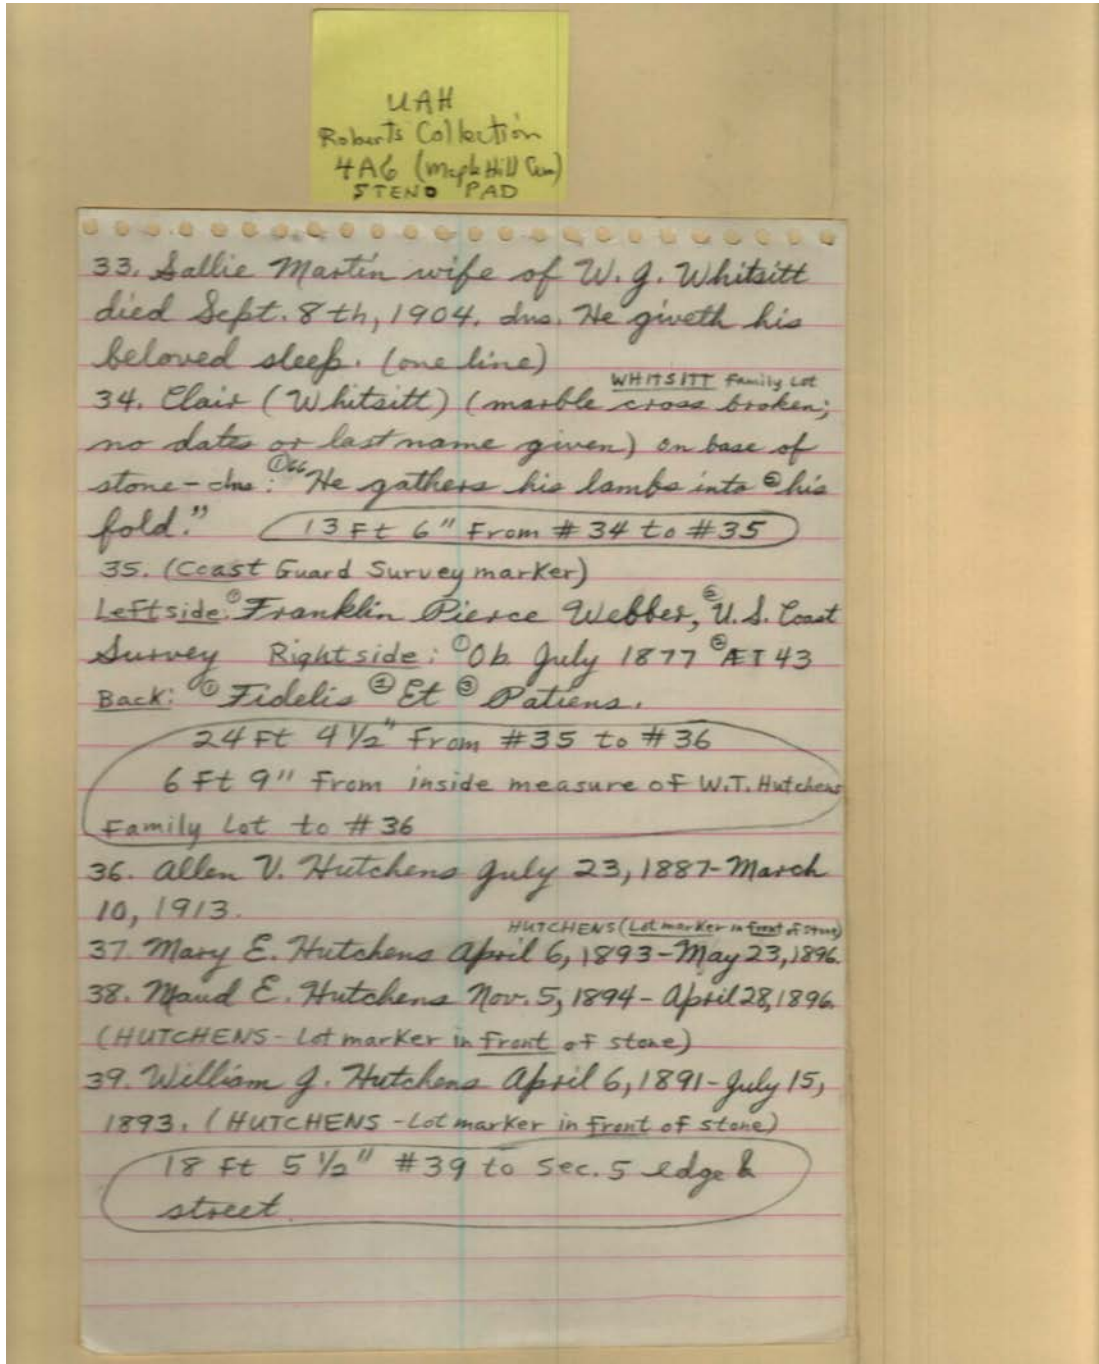 UAH
Roberts Collection
4A6 (Maple Hill Cem)
STENO PAD
33. Sallie Martin wife of W. J. Whitsitt
died Sept. 8th, 1904. dns. He giveth his
beloved sleep. (one line)
WHITSITT Family Lot
34. Clair (Whitsitt) (marble cross broken;
no dates or last name given) on base of
stone - dns: ① "He gathers his lambs into ② his
fold." 13 Ft 6" From #34 to #35
35. (Coast Guard Survey marker)
Left side: ① Franklin Pierce Webber, ② U.S. Coast
Survey Right side: ① Ob. July 1877 ② ÆT 43
Back: ① Fidelis ② Et ③ Patiens.
24 Ft 4 1/2" From #35 to #36
6 Ft 9" From inside measure of W.T. Hutchens
Family Lot to #36
36. Allen V. Hutchens July 23, 1887 - March
10, 1913.
HUTCHENS (Lot marker in front of stone)
37. Mary E. Hutchens April 6, 1893 - May 23, 1896.
38. Maud E. Hutchens Nov. 5, 1894 - April 28, 1896.
(HUTCHENS - Lot marker in front of stone)
39. William J. Hutchens April 6, 1891 - July 15,
1893. (HUTCHENS - Lot marker in front of stone)
18 Ft 5 1/2" #39 to Sec. 5 edge &
street